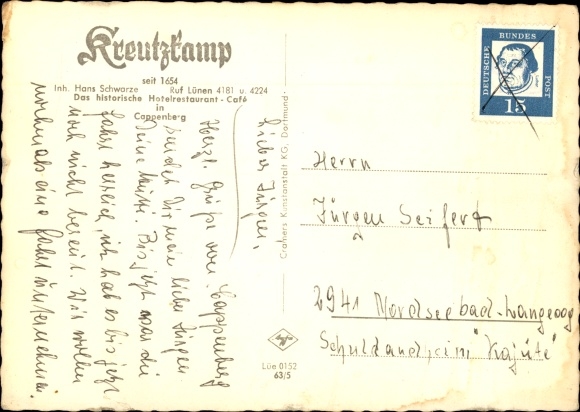 Kreutzkamp
seit 1654
Inh. Hans Schwarze Ruf Lünen 4181 u. 4224
Das historische Hotelrestaurant - Café
in
Cappenberg
Lieber Jürgen,
Herzl. Grüße von Cappenberg
sendet Dir mein lieber Jürgen
Deine Mutti. Bis jetzt war die
Fahrt herrlich, ich hab es bis jetzt
noch nicht bereut. Wir wollen
nochmals eine Fahrt unternehmen.
Cramers Kunstanstalt KG, Dortmund
Agfa
Lüe 0152
63/5
DEUTSCHE BUNDES POST
15
Herrn
Jürgen Seifert
2941 Nordseebad-Langeoog
Schullandheim "Kajüte"